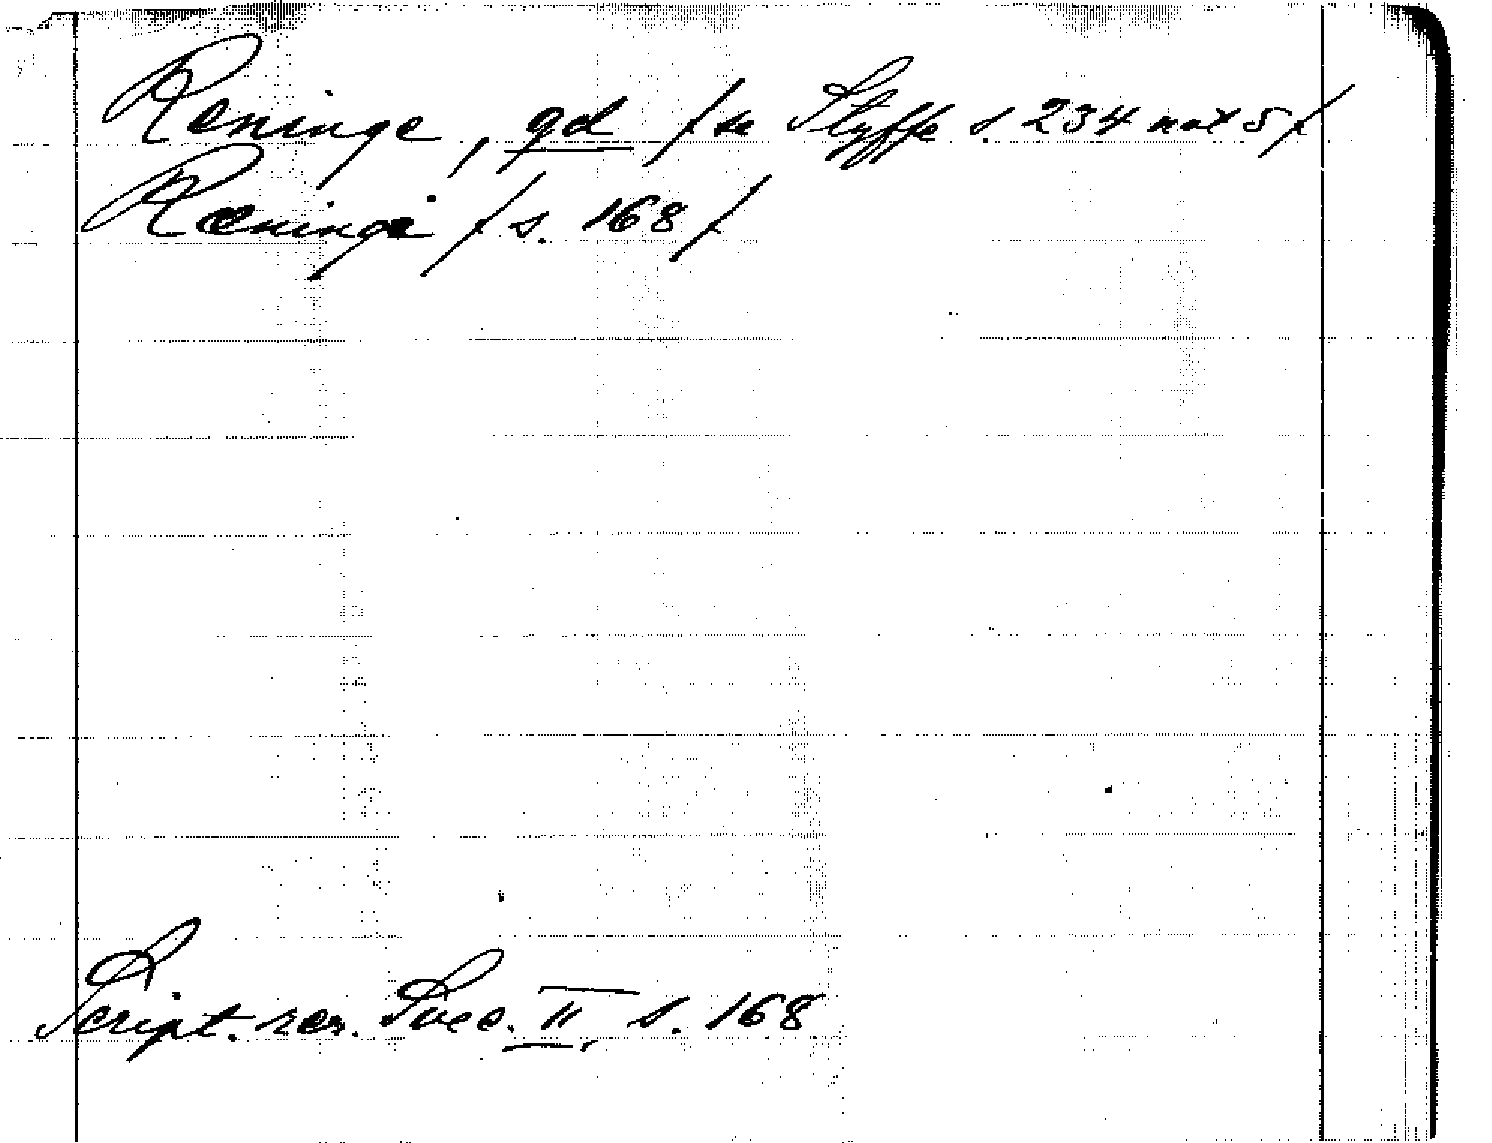 Reninge, gd /se Styffe s 234 not 5/
Ræninge /s. 168/
Script. rer. Svec. II, s. 168